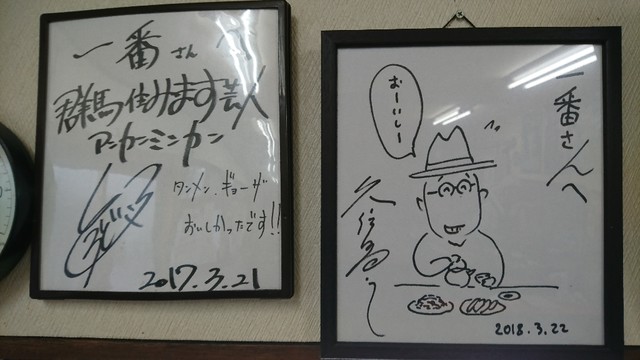 一番さんへ
群馬住みます芸人
アンカンミンカン
タンメン、ギョーザ
おいしかったです!!
2017.3.21
一番さんへ
おーいしー
2018.3.22